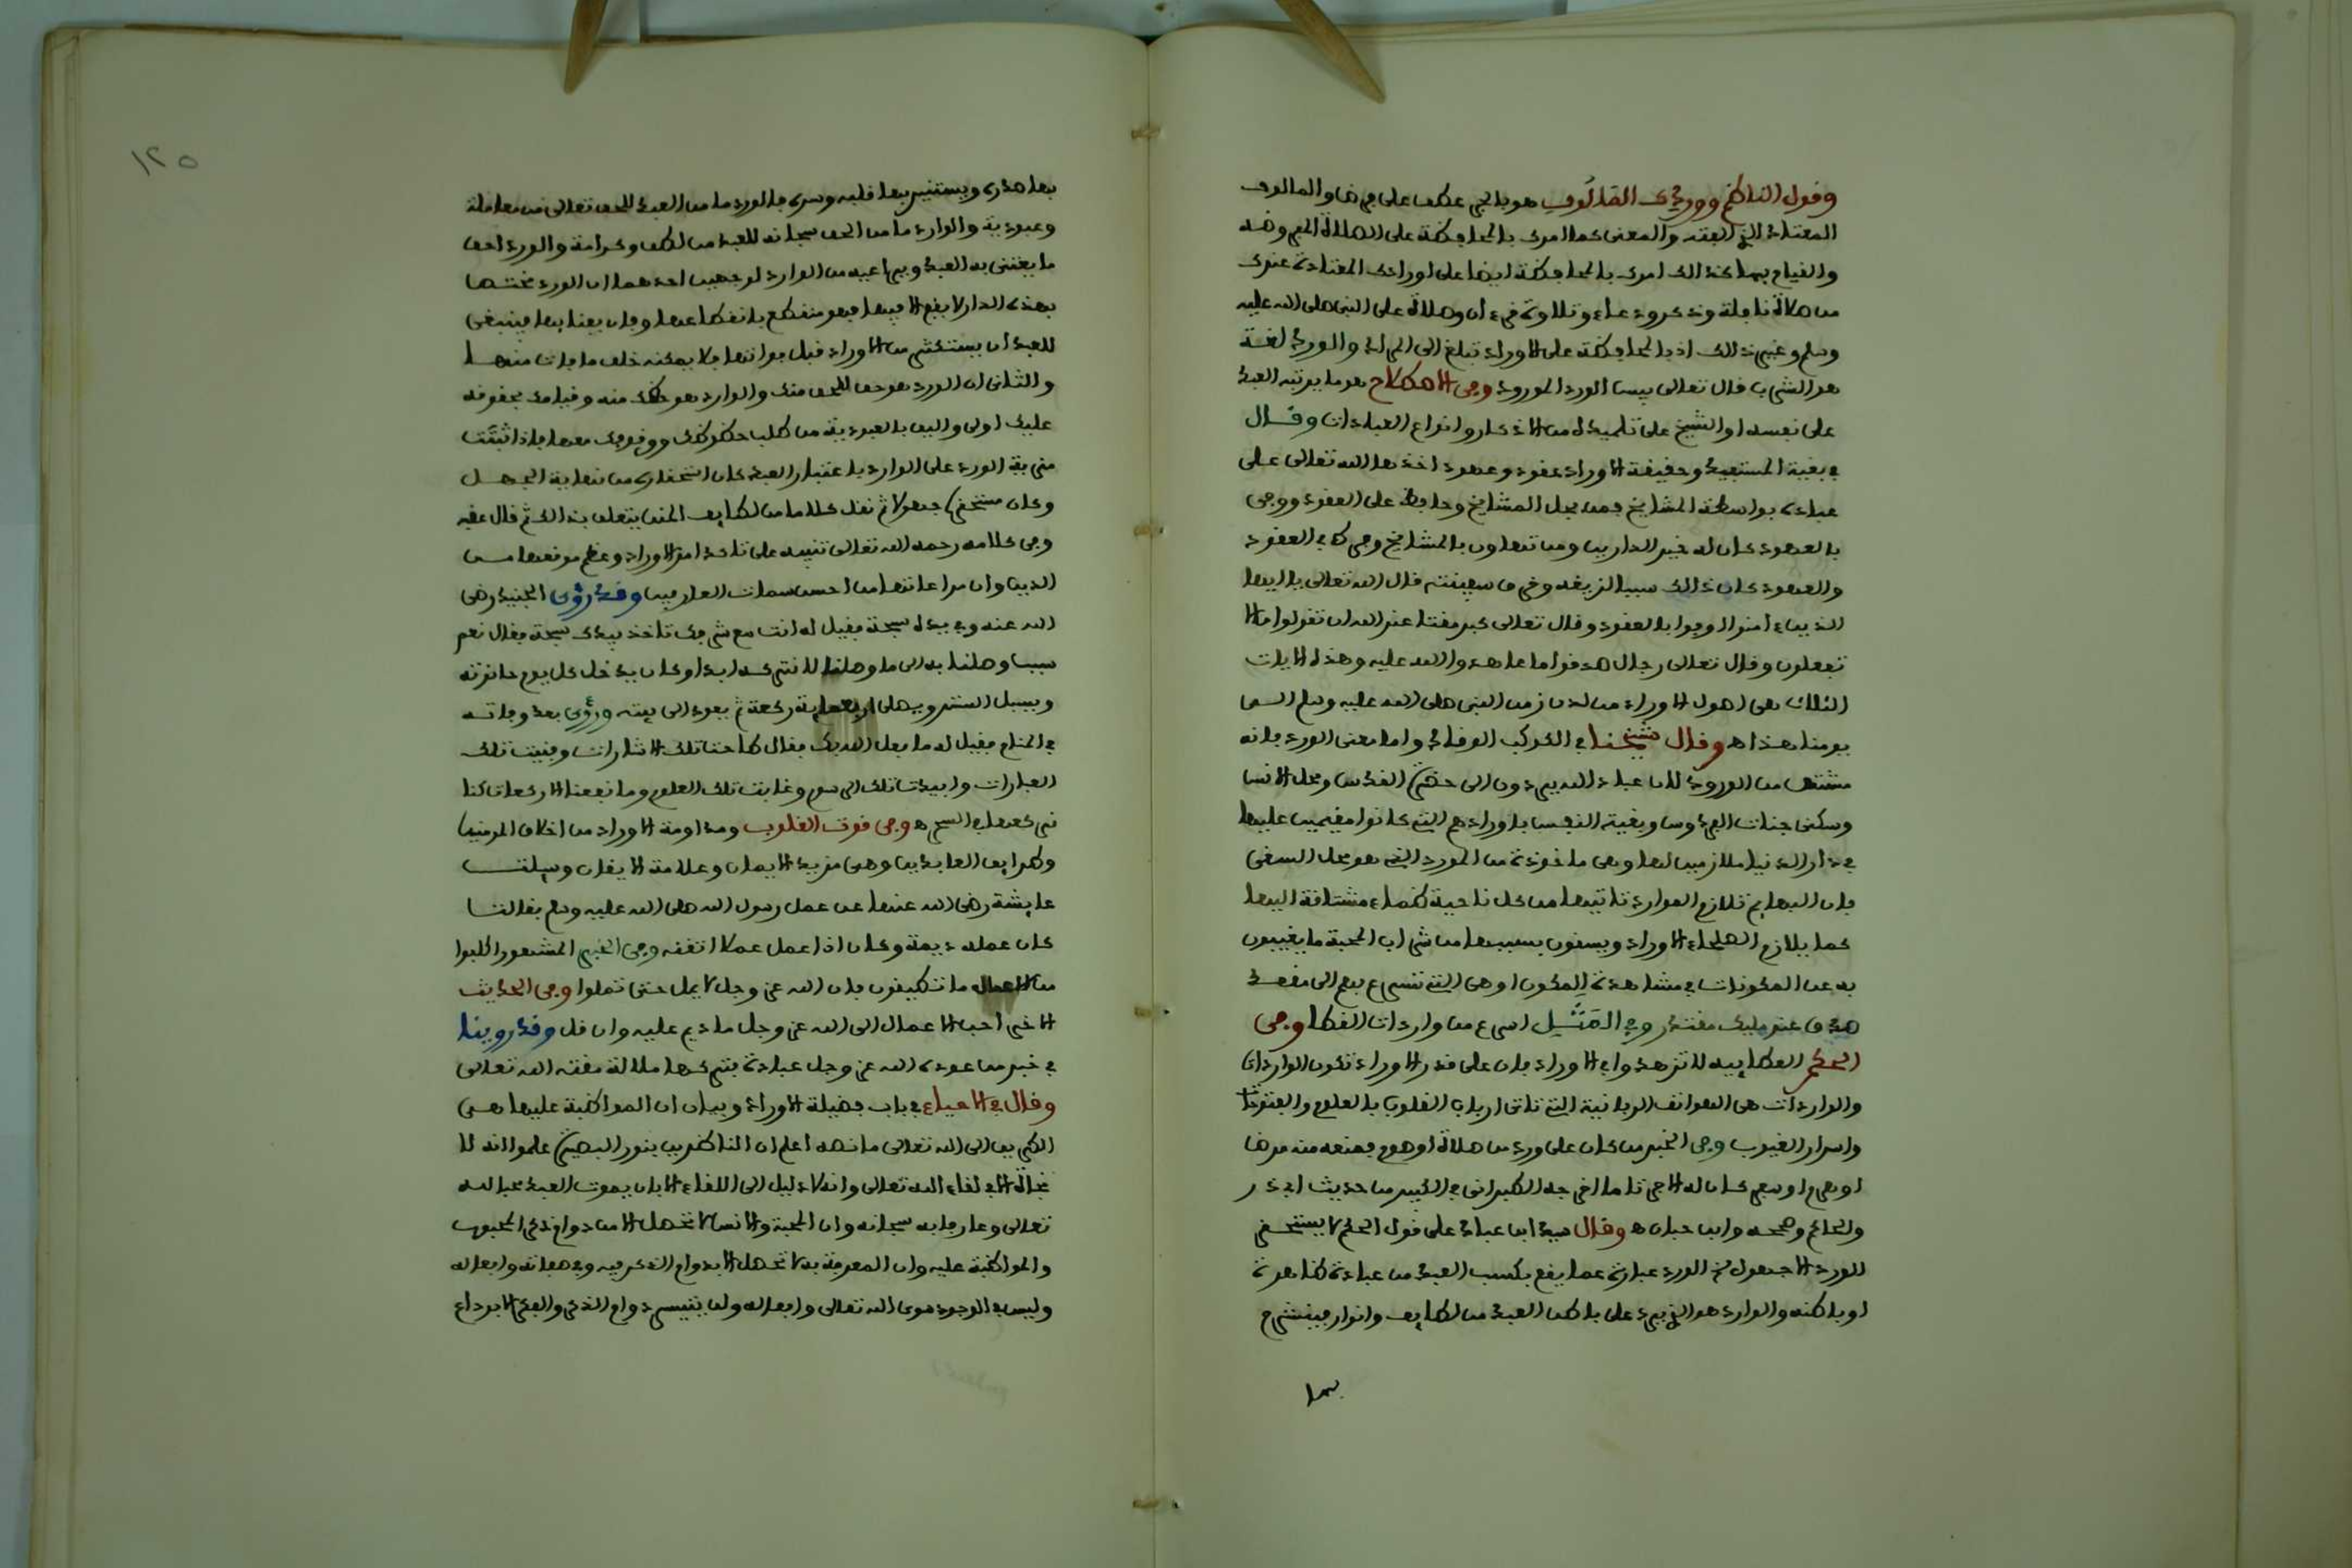 وقول الناظم ووردي المألوف هو بالجر عطف على فرضا والمالوف
المعتاد الذي الفته والمعنى كما امرك بالمحافظة على الصلاة المفروضة
والقيام بها كذالك امرك بالمحافظة ايضا على اورادك المعتادة عندك
من صلاة نافلة وذكر ودعاء وتلاوة قرءان وصلاة على النبي صلى الله عليه
وسلم وغير ذالك اذ بالمحافظة على الاوراد تبلغ الى المراد والورد لغة
هو الشراب قال تعالى بيس الورد المورود وفي الاصطلاح هو ما يرتبه العبد
على نفسه او الشيخ على تلميذه من الاذكار وانواع العبادات وقال
في بغية المستفيد وحقيقة الاوراد عقود وعهود اخذها الله تعالى على
عباده بواسطة المشايخ فمن بجل المشايخ وحافظ على العقود ووفى
بالعهود كان له خير الدارين ومن تهاون بالمشايخ وفرط في العقود
والعهود كان ذالك سببا لزيغه وخرق سفينته قال الله تعالى يا ايها
الذين ءامنوا اوفوا بالعقود وقال تعالى كبر مقتا عند الله ان تقولوا ما لا
تفعلون وقال تعالى رجال صدقوا ما عاهدوا الله عليه وهذه الايات
الثلاث هي اصول الاوراد من لدن زمن النبي صلى الله عليه وسلم الى
يومنا هذا اهـ وقال شيخنا في الكوكب الوقاد واما معنى الورد فانه
مشتق من الورود لان عباد الله يردون الى حضرة القدس ومحل الانس
وسكنى جنات الفردوس وبغية النفس باورادهم التي كانوا مقيمين عليها
في دار الدنيا ملازمين لها وهي ماخوذة من المورد الذي هو محل السقي
فان البهايم تلازم الموارد تاتيها من كل ناحية ظماء مشتاقة اليها
كما يلازم الصلحاء الاوراد ويسقون بسببها من شراب المحبة ما يغيبون
به عن المكونات في مشاهدة المكون او هي التي تسرع بهم الى مقعد
صدق عند مليك مقتدر وفي المثل اسرع من واردات القطا وفي
الحكم العطاييه لا تزهدوا في الاوراد فان على قدر الاوراد تكون الواردات
والواردات هي الهواتف الربانية التي تاتي ارباب القلوب بالعلوم والفتوحات
واسرار الغيوب وفي الخبر من كان على ورد من صلاة او صوم فمنعه منه مرض
او هرم او سفر كان له اجر تاما اخرجه الطبراني في الكبير من حديث ابي ذر
والحاكم وصححه وابن حبان اهـ وقال سيد ابن عباد على قول الحكم لا يستحقر
الورد الا جهول الورد عبارة عما يقع بكسب العبد من عبادة ظاهرة
او باطنه والوارد هو الذي يرد على باطن العبد من لطايف وانوار فينشرح
بها
١٢٥
بها صدره ويستنير بها قلبه وسره فالورد ما من العبد للحق تعالى من معاملة
وعبودية والوارد ما من الحق سبحانه للعبد من لطف وكرامة والورد احق
ما يعتني به العبد ويراعيه من الوارد لوجهين احدهما ان الورد مختصا
بهذه الدار لا يقع الا فيها فهو منقطع بانقطاعها وفان بفنايها فينبغي
للعبد ان يستكثر من الاوراد قبل فواتها فلا يمكنه خلف ما فات منها
والثاني ان الورد هو حق للحق منك والوارد هو حظك منه وقيامك بحقوقه
عليك اولى واليق بالعبودية من طلب حظوظك ووقوفك معها فاذا ثبتت
مزية الورد على الوارد باعتبار العبد كان استحقاره من نهاية الجهل
وكان مستحقره جهولا ثم نقل كلاما من لطايف المنن يتعلق بذالك ثم قال عقبه
وفي كلامه رحمه الله تعالى تنبيه على تاكد امر الاوراد وعظم موقعها من
الدين وان مراعاتها من احسن سمات العارفين وقد رؤي الجنيد رضي
الله عنه وفي يده سبحة فقيل له انت مع شرفك تاخذ بيدك سبحة فقال نعم
سبب وصلنا به الى ما وصلنا لا نتركه ابدا وكان يدخل كل يوم حانوته
ويسبل الستر ويصلي اربعماية ركعة ثم يعود الى بيته ورؤي بعد وفاته
في المنام فقيل له ما فعل الله بك فقال طاحت تلك الاشارات وفنيت تلك
العبارات وابيدت تلك الرسوم وغابت تلك العلوم وما نفعنا الا ركعات كنا
نركعها في السحر اهـ وفي قوت القلوب ومداومة الاوراد من اخلاق المومنين
وطرايق العابدين وهي مزيد الايمان وعلامة الايقان وسيلت
عايشة رضي الله عنها عن عمل رسول الله صلى الله عليه وسلم فقالت
كان عمله ديمة وكان اذا عمل عملا اتقنه وفي الخبر المشهور اكلفوا
من الاعمال ما تطيقون فان الله عز وجل لا يمل حتى تملوا وفي الحديث
الاخر احب الاعمال الى الله عز وجل ما ديم عليه وان قل وقد روينا
في خبر من عوده الله عز وجل عبادة فتركها ملالة مقته الله تعالى
وقال في الاحياء في باب فضيلة الاوراد وبيان ان المواظبة عليها هي
الطريق الى الله تعالى ما نصه اعلم ان الناظرين بنور البصيرة علموا انه لا
نجاة الا في لقاء الله تعالى وانه لا دليل الى اللقاء الا بان يموت العبد محبا لله
تعالى وعارفا به سبحانه وان المحبة والانس لا تحصل الا من دوام ذكر المحبوب
والمواظبة عليه وان المعرفة به لا تحصل الا بدوام الفكر فيه وفي صفاته وافعاله
وليس في الوجود سوى الله تعالى وافعاله ولن يتيسر دوام الذكر والفكر الا بوداع